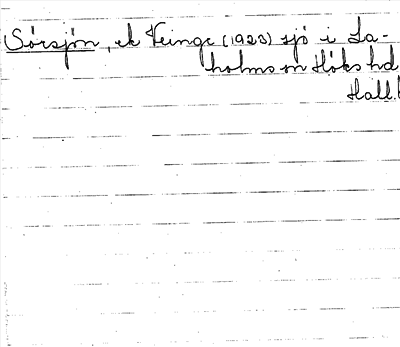 Sörsjön, ek Veinge (1923) sjö i La-
holms sn Höks hd
Hall.